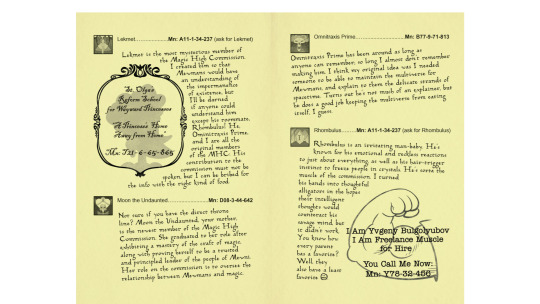 Lekmet...................Mn: A11-1-34-237 (ask for Lekmet)
Lekmet is the most mysterious member of
the Magic High Commission.
I created him so that
Mewmans would have
an understanding of
the impermanence
of existence, but
I'll be darned
if anyone could
understand him
except his roommate,
Rhombulus. He,
Omnitraxis Prime,
and I are all the
original members
of the MHC. His
contribution to the
commission must not be
spoken, but I can be bribed for
the info with the right kind of food.
St. Olga's
Reform School
for Wayward Princesses
"A Princess' Home
Away from Home"
Mn: T21-6-65-665
Moon the Undaunted...............Mn: D08-3-44-642
Not sure if you have the direct throne
line? Moon the Undaunted, your mother,
is the newest member of the Magic High
Commission. She graduated to her role after
exhibiting a mastery of the craft of magic,
along with proving herself to be a trusted
and principled leader of the people of Mewni.
Her role on the commission is to oversee the
relationship between Mewmans and magic.
Omnitraxis Prime.......................Mn: B77-9-71-813
Omnitraxis Prime has been around as long as
anyone can remember, so long I almost don't remember
making him. I think my original idea was I needed
someone to be able to maintain the multiverse for
Mewmans, and explain to them the delicate strands of
spacetime. Turns out he's not much of an explainer, but
he does a good job keeping the multiverse from eating
itself, I guess.
Rhombulus............Mn: A11-1-34-237 (ask for Rhombulus)
Rhombulus is an irritating man-baby. He's
known for his emotional and reckless reactions
to just about everything, as well as his hair-trigger
instinct to freeze people in crystals. He's sorta the
muscle of the commission. I turned
his hands into thoughtful
alligators in the hopes
their intelligent
thoughts would
counteract his
savage mind, but
it didn't work.
You know how
every parent
has a favorite?
Well, they
also have a least
favorite ☹
I Am Yvgeny Bulgolyubov
I Am Freelance Muscle
for Hire
You Call Me Now:
Mn: Y78-32-456